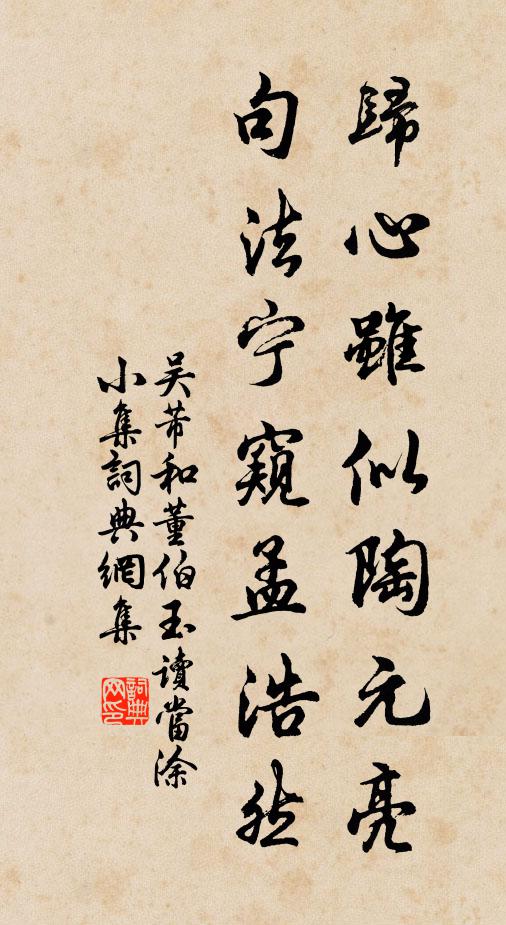 歸心雖似陶元亮
句法宁窺孟浩然
吴芾和董伯玉讀當涂
小集詞典網集
詞典网印